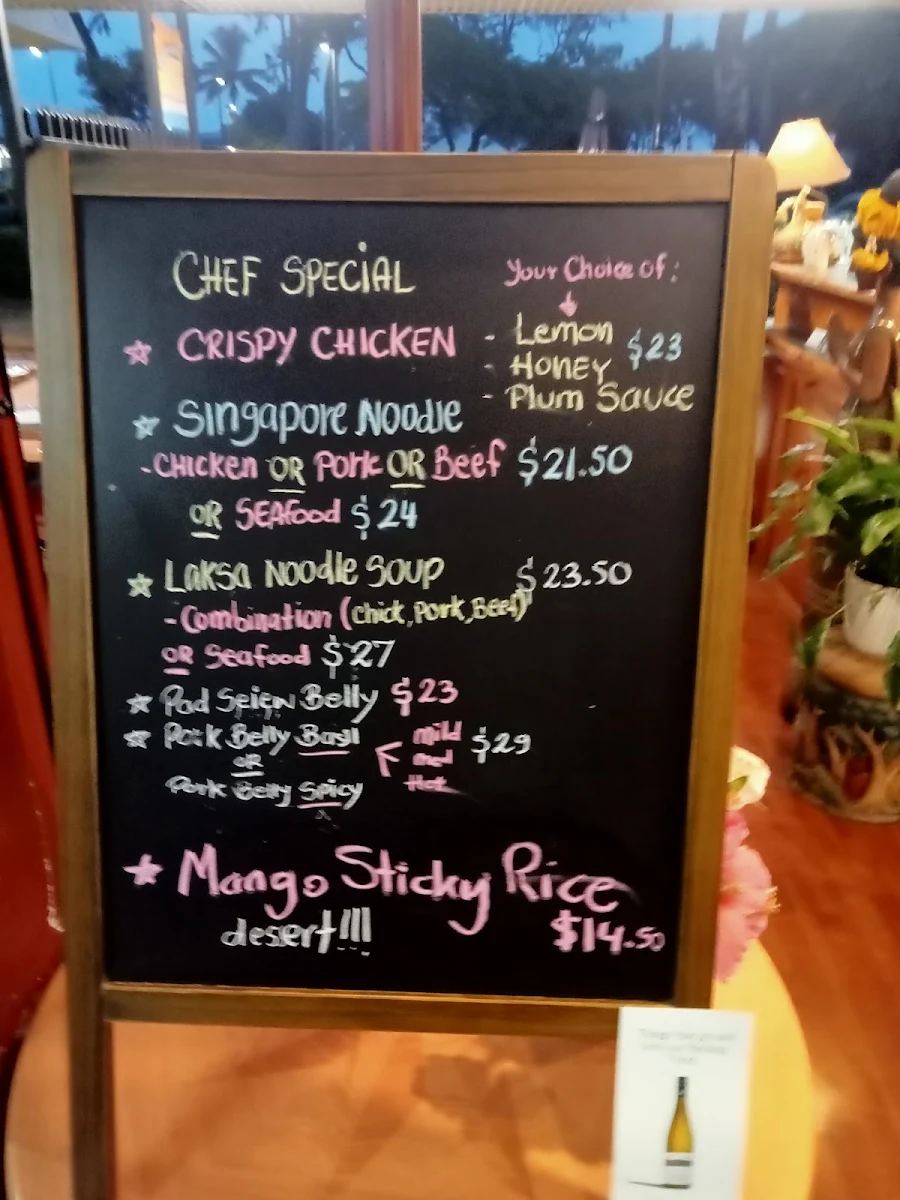 CHEF SPECIAL
Your Choice of:
CRISPY CHICKEN - Lemon $23
- HONEY
- Plum Sauce
Singapore Noodle
-CHICKEN OR Pork OR Beef $21.50
OR SEAfood $24
Laksa Noodle Soup $23.50
-Combination (Chick,Pork,Beef)
OR Seafood $27
Pad Seiew Belly $23
Pork Belly Basil mild $29
OR med
Pork Belly Spicy Hot
Mango Sticky Rice
desert!!! $14.50